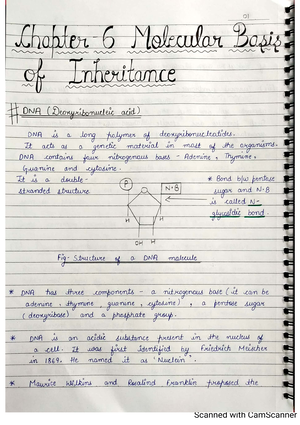 01
Chapter-6 Molecular Basis
of Inheritance
# DNA (Deoxyribonucleic acid)
DNA is a long polymer of deoxyribonucleotides.
It acts as a genetic material in most of the organisms.
DNA contains four nitrogenous bases - Adenine, Thymine,
Guanine and cytosine.
It is a double-
stranded structure.
P
N·B
O
H
H
OH
H
* Bond b/w pentose
sugar and N·B
is called N-
glycosidic bond.
Fig- Structure of a DNA molecule
* DNA has three components - a nitrogenous base (it can be
adenine, thymine, guanine, cytosine), a pentose sugar
(deoxyribose) and a phosphate group.
* DNA is an acidic substance present in the nucleus of
a cell. It was first identified by Friedrich Meischer
in 1869. He named it as 'Nuclein'.
* Maurice Wilkins and Rosalind Franklin proposed the
Scanned with CamScanner